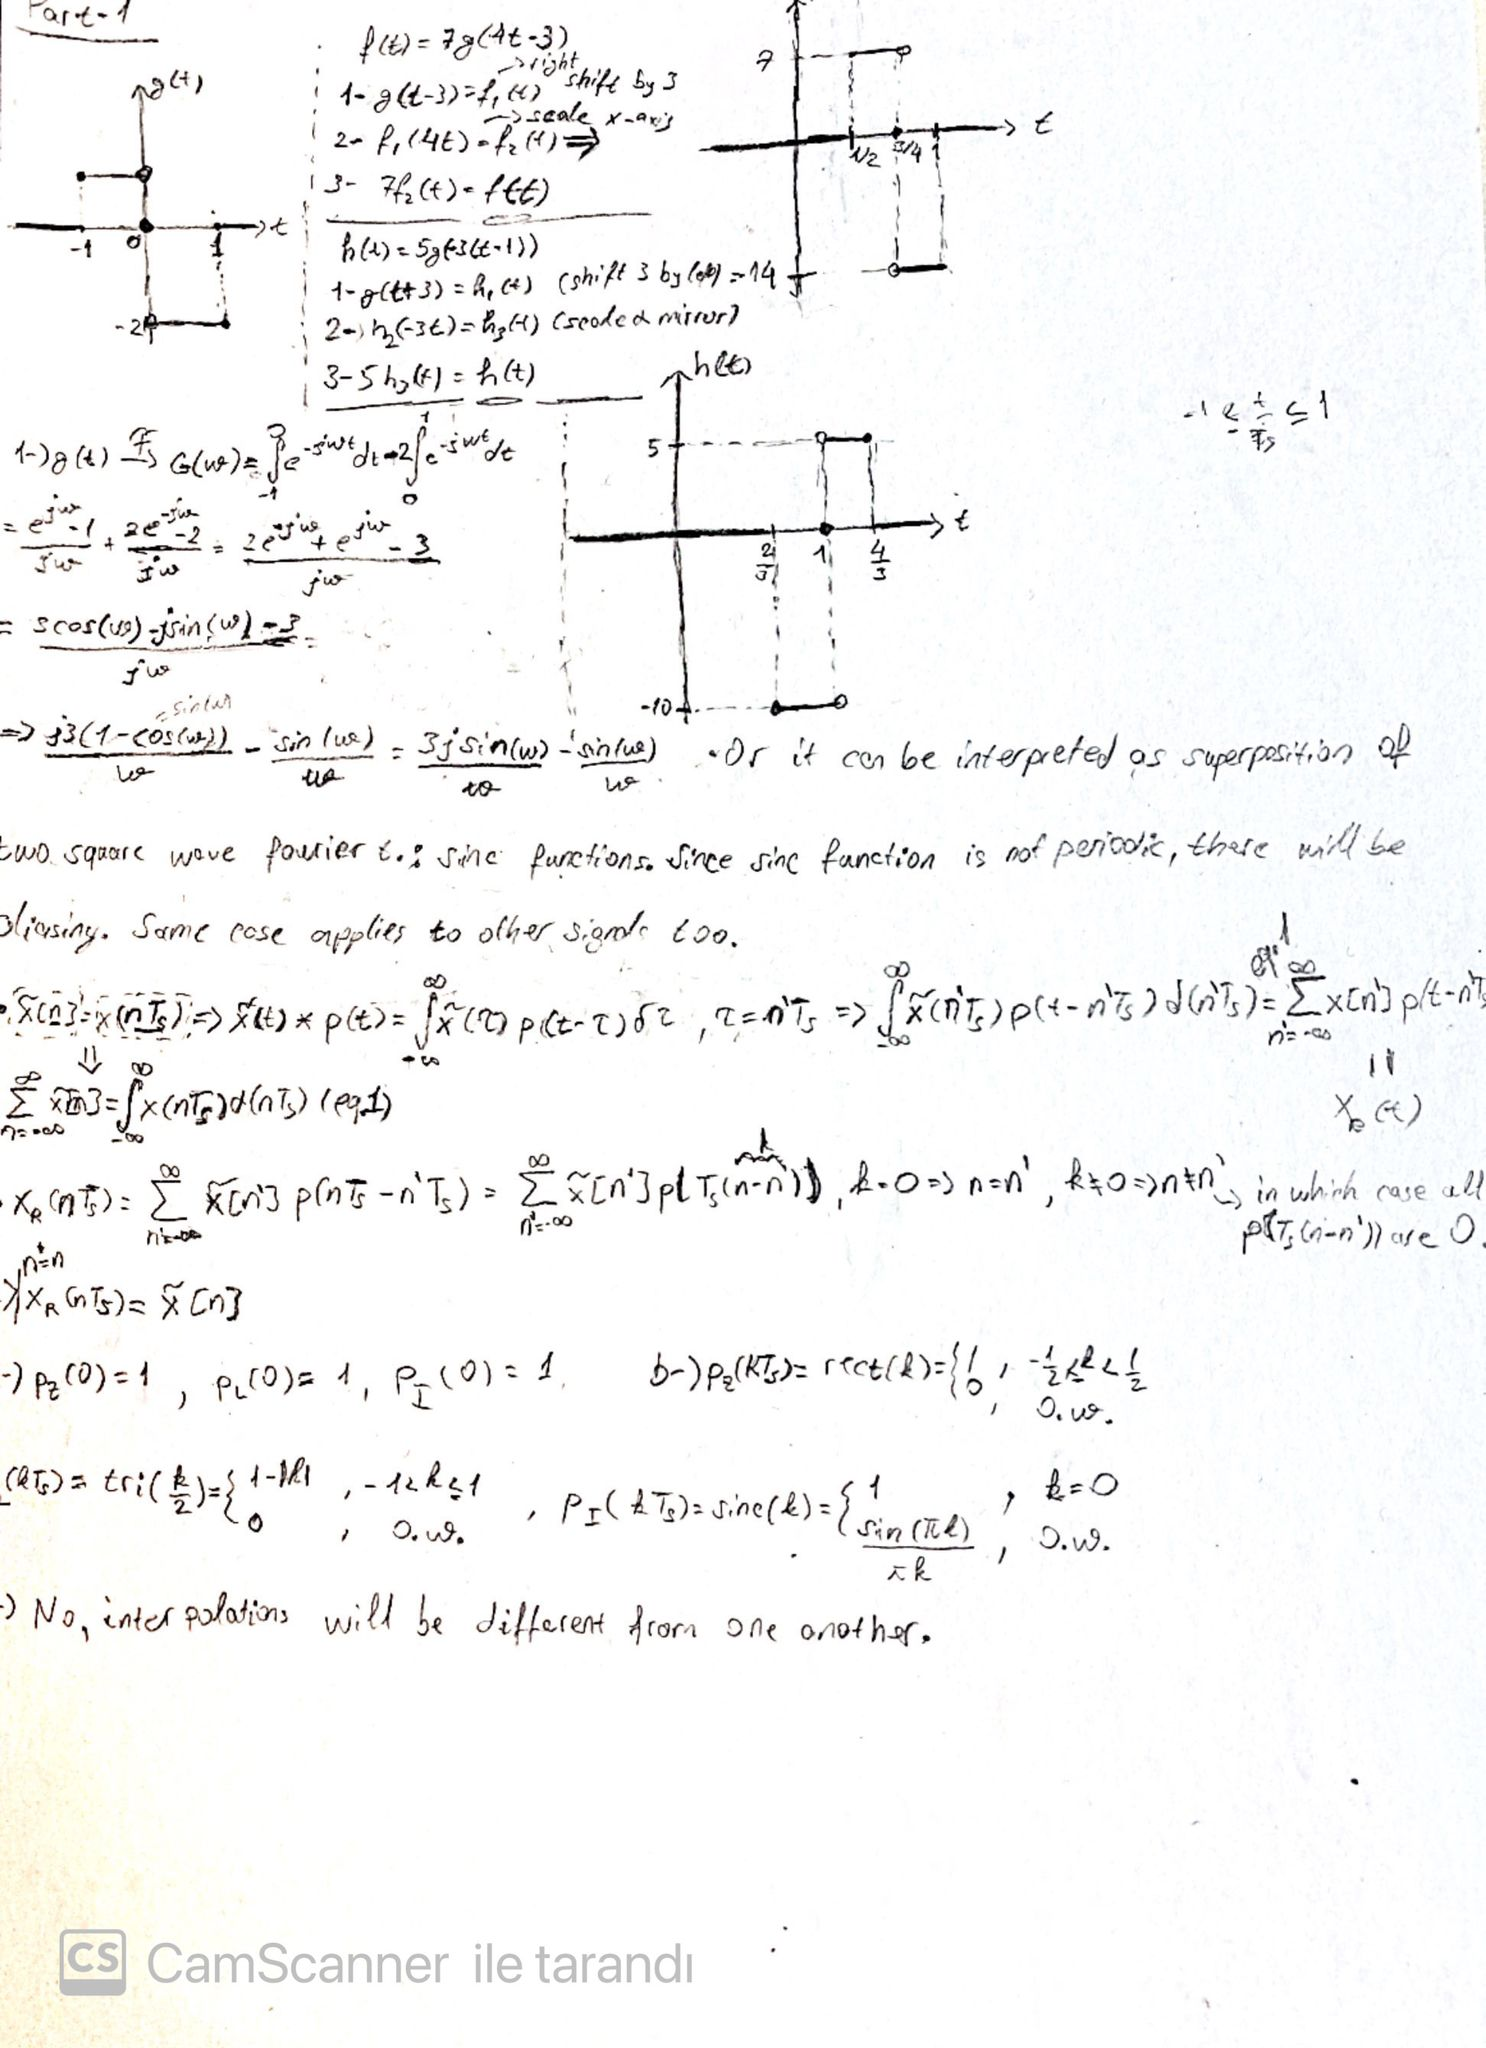 Part-1
g(t)
-1 0 1 t
-2
f(t) = 7g(4t-3)
1- g(t-3) = f₁(t) → right shift by 3
2- f₁(4t) = f₂(t) ⇒ → scale x-axis
3- 7f₂(t) = f(t)
7
1/2 3/4 1 t
-14
h(t) = 5g(-3(t-1))
1- g(t+3) = h₁(t) (shift 3 by left)
2-) h₂(-3t) = h₃(t) (scale & mirror)
3- 5h₃(t) = h(t)
h(t)
5
2/3 1 4/3 t
-10
-1 ≤ t/Ts ≤ 1
1-) g(t) F→ G(w) = ∫₋₁⁰ e^-jwt dt - 2∫₀¹ e^-jwt dt
= (e^jw - 1)/jw + (2e^-jw - 2)/jw = (2e^-jw + e^jw - 3)/jw
= (3cos(w) - jsin(w) - 3)/jw =
=> j3(1-cos(w))/w - sin(w)/w = 3jsin(w)/w - sin(w)/w • Or it can be interpreted as superposition of
= sin(w)
two square wave fourier t.: sinc functions. Since sinc function is not periodic, there will be
aliasing. Same case applies to other signals too.
x̃[n] = x(nTs) => x̃(t) * p(t) = ∫₋∞^∞ x̃(τ) p(t-τ) δτ , τ = n'Ts => ∫₋∞^∞ x̃(n'Ts) p(t-n'Ts) d(n'Ts) = eq.1 Σ_{n'=-∞}^∞ x[n'] p(t-n'Ts
⇓
Σ_{n=-∞}^∞ x̃[n] = ∫₋∞^∞ x(nTs) d(nTs) (eq.1)
=
X_R(t)
• X_R(nTs) = Σ_{n'=-∞}^∞ x̃[n'] p(nTs - n'Ts) = Σ_{n'=-∞}^∞ x̃[n'] p(Ts(n-n')) , k=0 => n=n' , k≠0 => n≠n' → in which case all
k
p(Ts(n-n')) are 0.
n'=n
X_R(nTs) = x̃[n]
-) p_Z(0) = 1 , p_L(0) = 1, p_I(0) = 1. b-) p_Z(kTs) = rect(k) = { 1 , -1/2 ≤ k < 1/2
0 , O.w.
(kTs) = tri(k/2) = { 1-|k| , -1 < k ≤ 1
0 , O.w.
, p_I(kTs) = sinc(k) = { 1 , k=0
sin(πk)/πk , O.w.
-) No, interpolations will be different from one another.
CS CamScanner ile tarandı